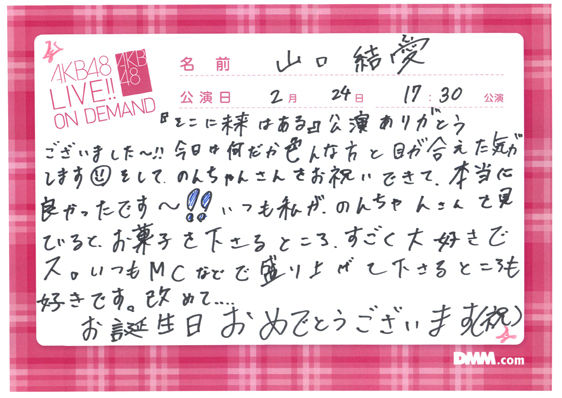 AKB48
LIVE!!
ON DEMAND
AKB
48
名前 山口 結愛
公演日 2月 24日 17:30 公演
『そこに未来はある』公演ありがとう
ございました〜!! 今日は何だか色んな方と目が合えた気が
します そして、のんちゃんさんをお祝いできて、本当に
良かったです〜!! いつも私が、のんちゃんさんを見
ていると、お菓子を下さるところ、すごく大好きで
ス。いつもMCなどで盛り上げて下さるところも
好きです。改めて....
お誕生日おめでとうございます(祝)
DMM.com